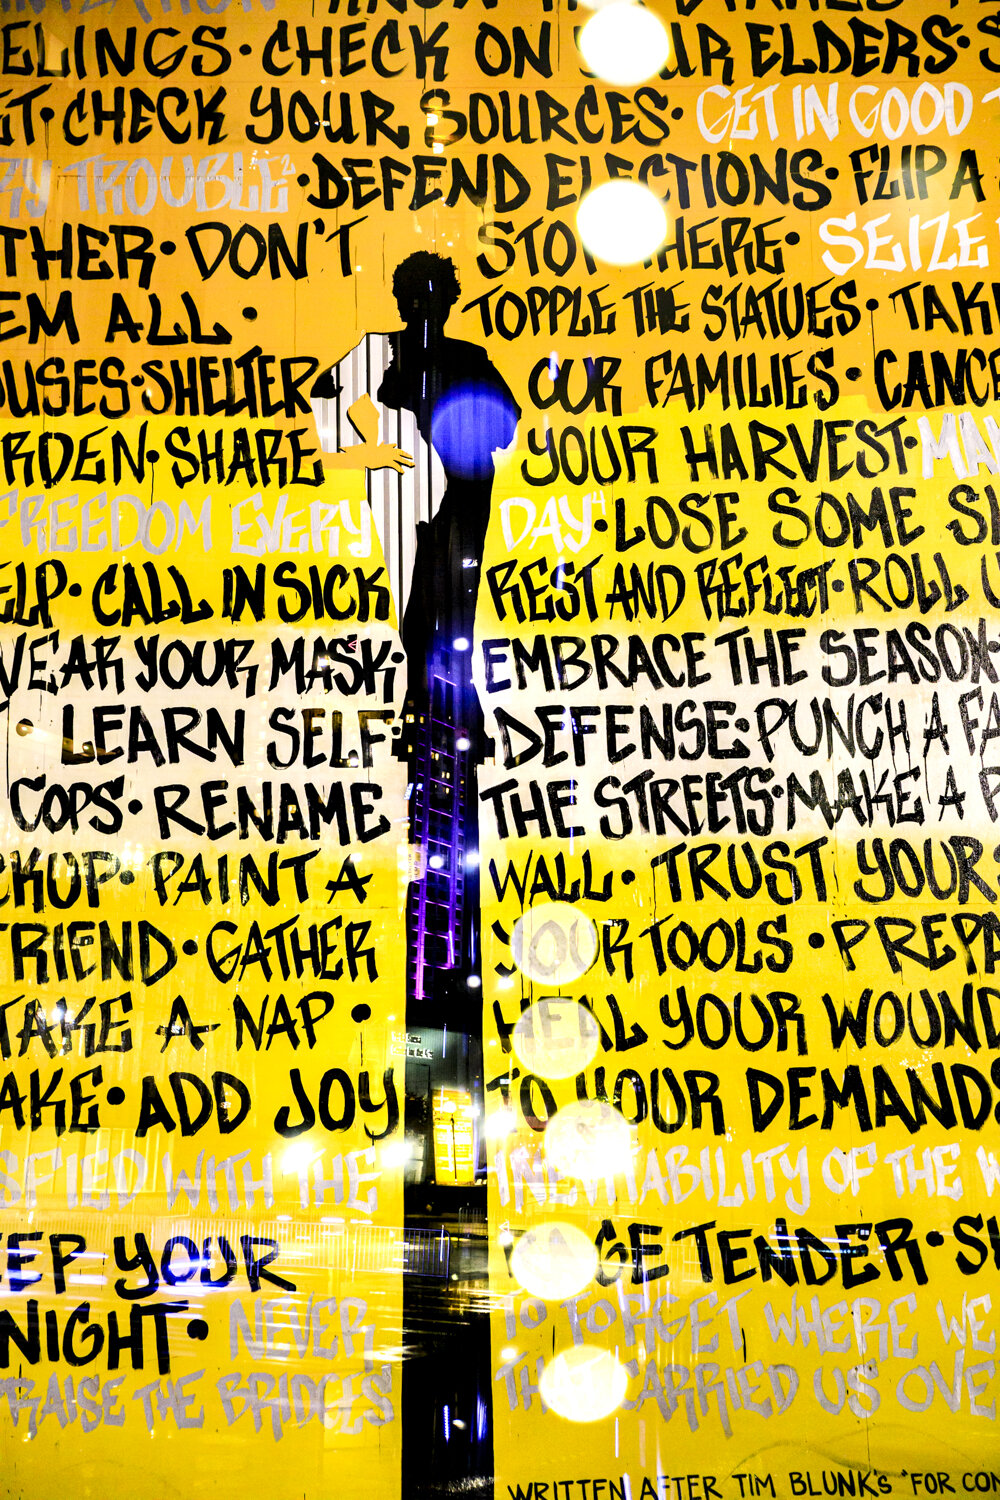 KNOW
ELINGS · CHECK ON YOUR ELDERS · S
ET · CHECK YOUR SOURCES · GET IN GOOD T
RY TROUBLE² · DEFEND ELECTIONS · FLIP A
THER · DON'T STOP THERE · SEIZE
EM ALL · TOPPLE THE STATUES · TAKE
OUSES · SHELTER OUR FAMILIES · CANCE
RDEN · SHARE YOUR HARVEST · MAY
FREEDOM EVERY DAY⁴ · LOSE SOME SL
ELP · CALL IN SICK REST AND REFLECT · ROLL U
WEAR YOUR MASK · EMBRACE THE SEASON ·
· LEARN SELF- DEFENSE · PUNCH A FA
COPS · RENAME THE STREETS · MAKE A P
CKUP · PAINT A WALL · TRUST YOURS
FRIEND · GATHER YOUR TOOLS · PREPA
TAKE A NAP · HEAL YOUR WOUND
AKE · ADD JOY TO YOUR DEMANDS
SFIED WITH THE INEVITABILITY OF THE W
EEP YOUR RAGE TENDER · SH
NIGHT · NEVER TO FORGET WHERE WE
PRAISE THE BRIDGES THAT CARRIED US OVE
WRITTEN AFTER TIM BLUNK'S "FOR CON